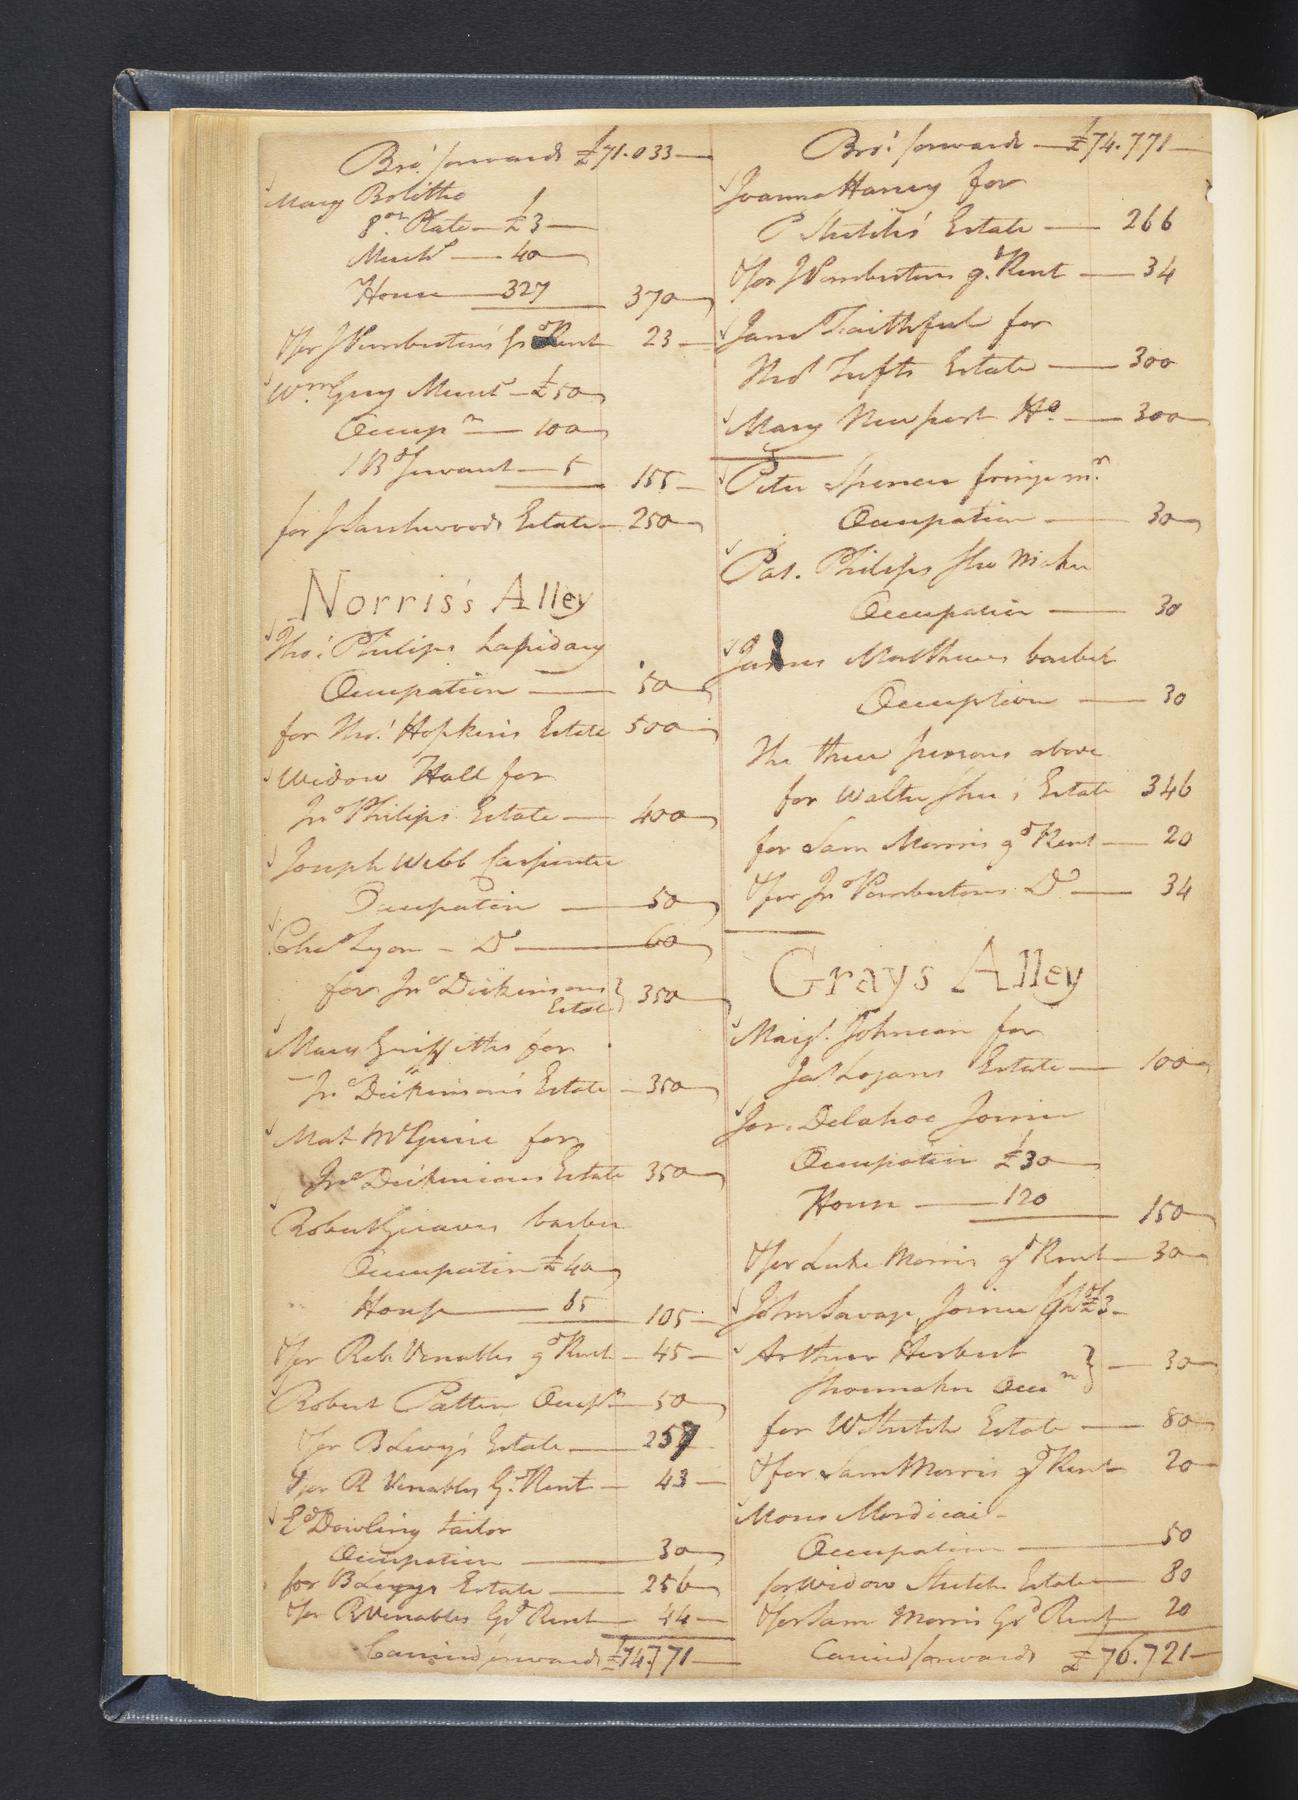 Bro.t forwards £71.033
Mary Bolitho
8 oz. Plate £3
Merch.t 40
House 327 370
for J Pemberton's G.d Rent 23
W.m Gray Merct £50
Occup.n 100
1 B Servant 5 155
for J Estate 250
Norris's Alley
Tho.s Philips Lapidary
Occupation 50
for Tho.s Hopkins Estate 500
Widow Hall for
Jn.o Philips Estate 400
Joseph Webb Carpenter
Occupation 50
Cha.s Lyon - D.o 60
for Jn.o Dickinsons
Estate } 350
Mary Griffiths for
Jn.o Dickinson's Estate 350
Mat McGuire for
Jn.o Dickinsons Estate 350
Robert Greaves barber
Occupation £40
House 65 105
for Rob. Venables g.d Rent 45
Robert Patten Occup.n 50
for B Levy's Estate 257
for R Venables G.d Rent 43
E.d Dowling tailor
Occupation 30
for B Levys Estate 256
for R Venables G.d Rent 44
Carried forwards £74.771
Bro.t forwards £74.771
Joanna Harvey for
P Stretch's Estate 266
for J Pembertons g.d Rent 34
Jane Faithful for
Tho.s Tufts Estate 300
Mary Newport H.o 300
Peter Spencer fringe m.r
Occupation 30
Pat. Philips Shoe Maker
Occupation 30
James Matthews barber
Occuption 30
The three persons above
for Walter Shee's Estate 346
for Sam Morris g.d Rent 20
for Jn.o Pembertons D.o 34
Grays Alley
Marg.t Johnson for
Ja.s Logans Estate 100
Jos. Delahoe Joiner
Occupation £30
House 120 150
for Luke Morris g.d Rent 30
John Savage, Joiner £3
Arthur Herbert
Shoemaker Occu.n } 30
for W Stretch Estate 80
for Sam Morris g.d Rent 20
Moses Mordicai
Occupation 50
for Widow Stretch Estate 80
for Sam Morris Gr.d Rent 20
Carried forwards £76.721